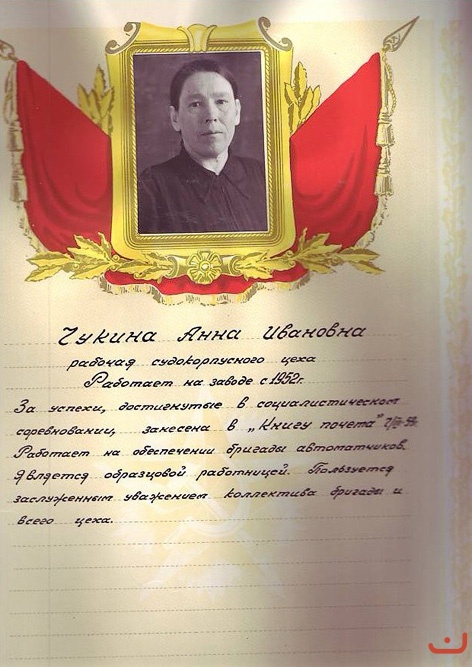 Чукина Анна Ивановна
рабочая судокорпусного цеха
Работает на заводе с 1952г.
За успехи, достигнутые в социалистическом
соревновании, занесена в „Книгу почета"
Работает на обеспечении бригады автоматчиков.
Является образцовой работницей. Пользуется
заслуженным уважением коллектива бригады и
всего цеха.